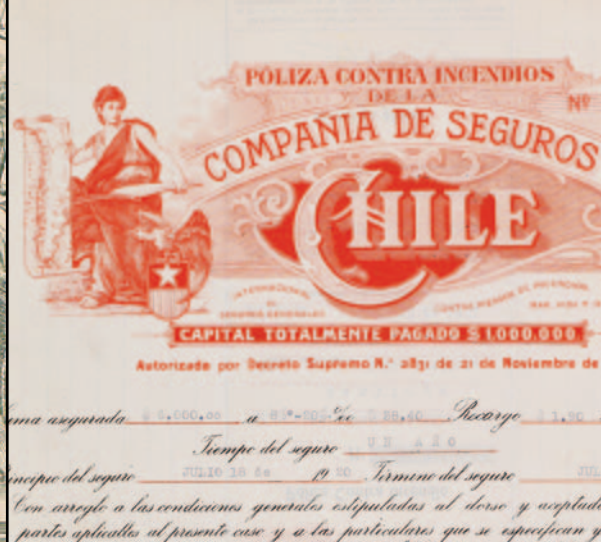 PÓLIZA CONTRA INCENDIOS
DE LA
Nº
COMPAÑIA DE SEGUROS
CHILE
CAPITAL TOTALMENTE PAGADO $ 1.000.000
Autorizada por Decreto Supremo N.º 2831 de 21 de Noviembre de
asegurada $ 6.000,00 a Recargo $ 1,20
Tiempo del seguro UN AÑO
del seguro JULIO 18 de 1920 Término del seguro JUL
Con arreglo a las condiciones generales estipuladas al dorso y aceptada
partes aplicables al presente caso y a las particulares que se especifican y